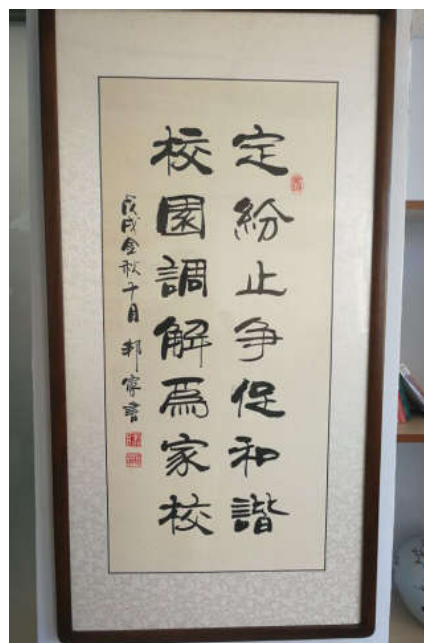 定紛止争促和諧
校園調解爲家校
戊戌金秋十月邦寧書